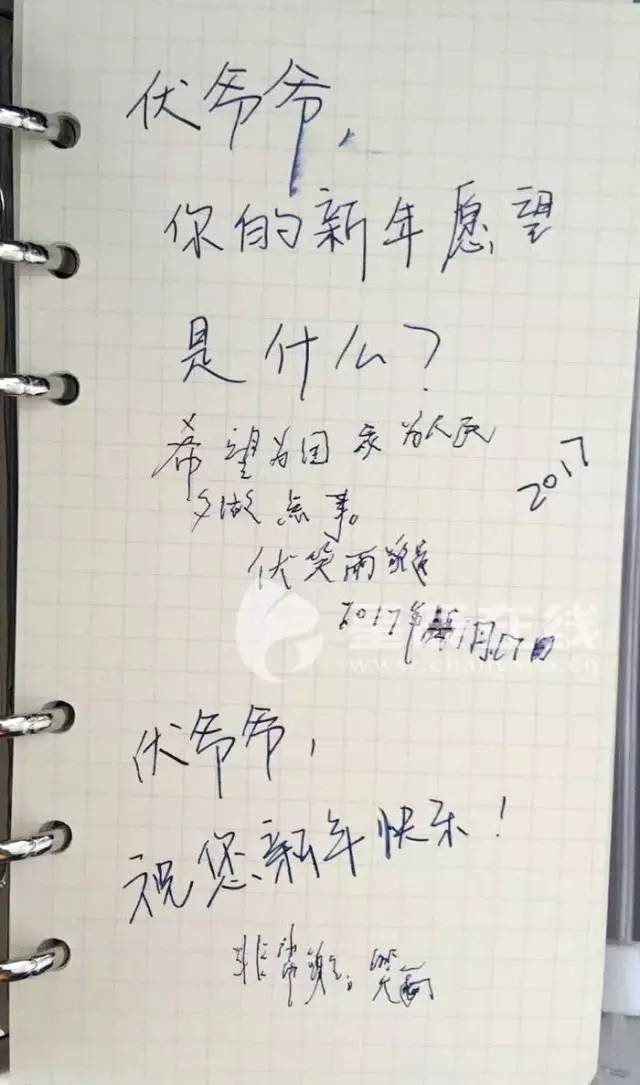 伏爷爷，
你的新年愿望
是什么？
希望为国家为人民
多做点事。
2017
伏笑雨
2017年 1月17日
www.changsha.cn
伏爷爷，
祝您新年快乐！
非常谢谢。笑雨